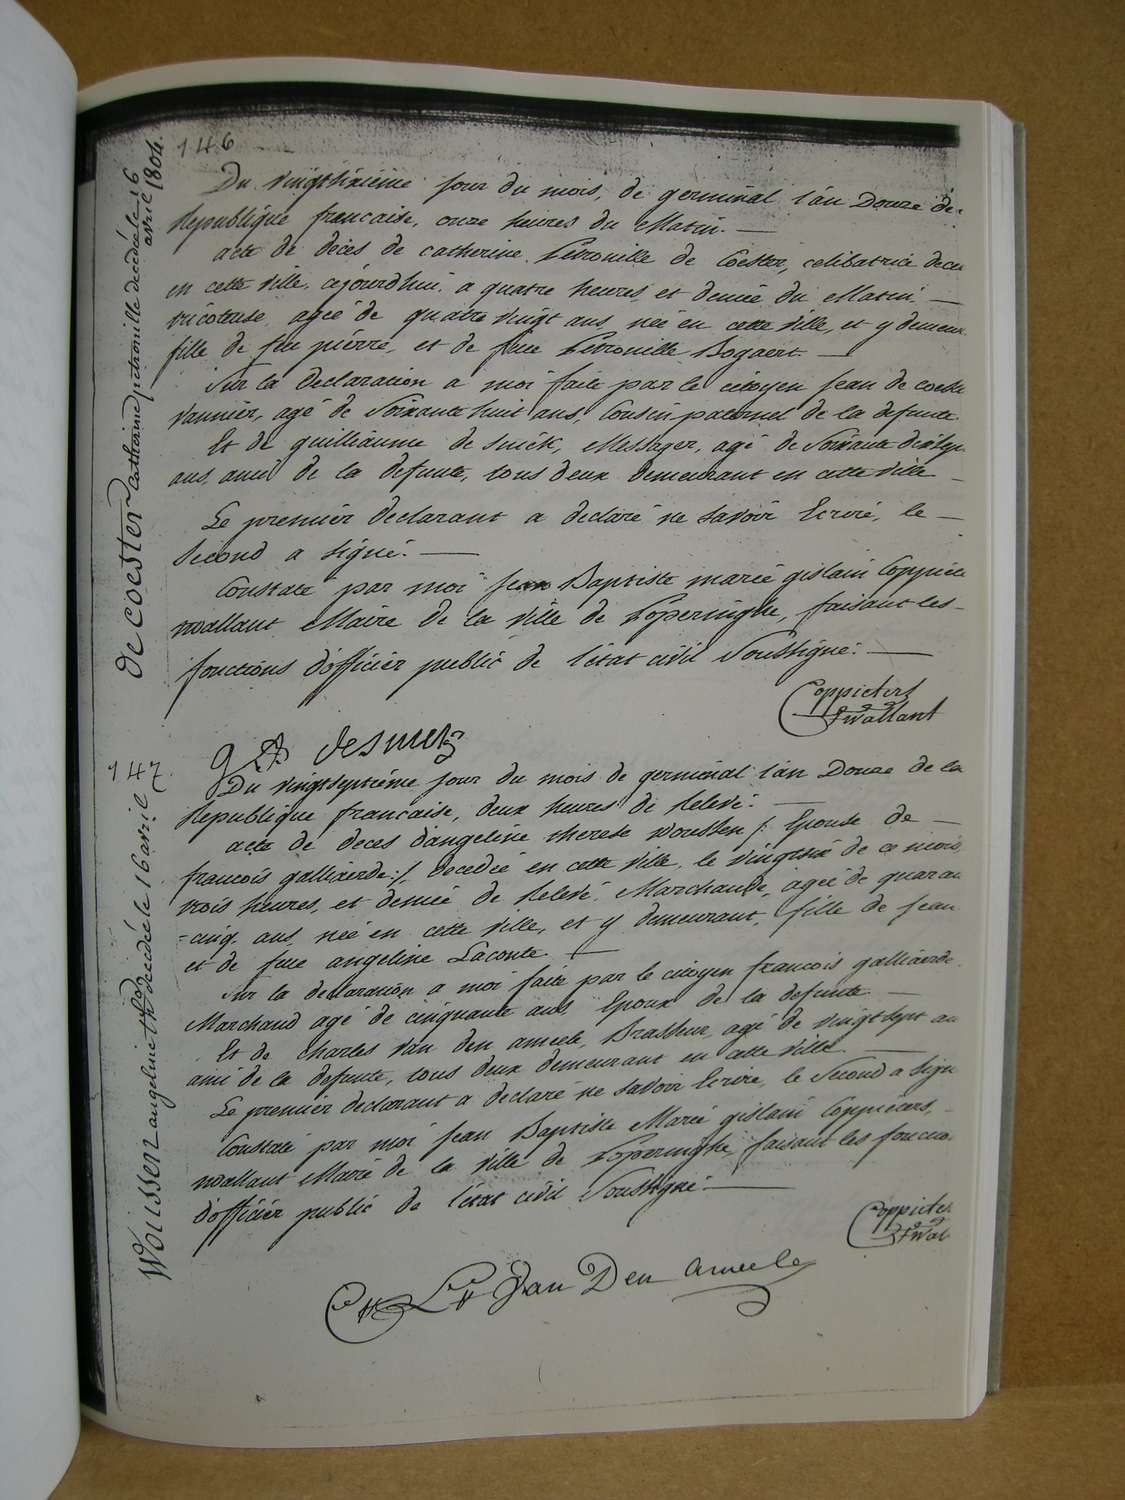 146
De Coester Catherine petronille decedée le 16
avril 1804.
Du vingtsixième jour du mois, de germinal l'an Douze de
Republique francaise, onze heures du Matin. —
acte de décès de Catherine Petronille de Coester, celibatrice deced
en cette ville, aujourdhui a quatre heures et demie du Matin —
tricoteuse agée de quatre vingt ans, née en cette ville, et y demeur
fille de feu pierre, et de feue Petronille Bogaert —
Sur la declaration a moi faite par le citoyen jean de coeste
vannier, agé de Soixante huit ans, Cousin paternel de la defunte
Et de guilliaume de smick, Messager, agé de Soixante
ans, ami de la defunte, tous deux demeurant en cette ville —
Le premier declarant a declaré ne savoir Ecrire, le —
second a signé. —
Constaté par moi jean Baptiste marie gislain Coppiete
wallant Maire de la ville de Poperinghe, faisant les
fonctions d'officier public de l'état civil Soussigné. —
Coppieters
twallant
desmetz
147.
Wousser angeline decedée le 16 avril
Du vingtseptième jour du mois de germinal l'an Douze de la
Republique francaise, deux heures de Relevé. —
acte de deces d'angeline therese woussen /: Epouse de —
francois galliaerde :/ Decedée en cette ville, le vingtsix de ce mois,
trois heures, et demiée de Relevé, Marchande, agée de quaran
=cinq ans, née en cette ville, et y demeurant, fille de jean
et de feue angeline Laconte —
Sur la declaration a moi faite par le citoyen francois galliaerde
Marchand agé de cinquante ans Epoux de la defunte —
Et de Charles Van den ameele, Brasseur, agé de vingtsept an
ami de la defunte, tous deux demeurant en cette ville —
Le premier declarant a declaré ne savoir Ecrire, le Second a signé
Constaté par moi Jean Baptiste Marie gislain Coppieters,
wallant Maire de la ville de Poperinghe, faisant les fonctio
d'officier public de l'état civil Soussigné. —
Coppieter
twal
Van Den ameele